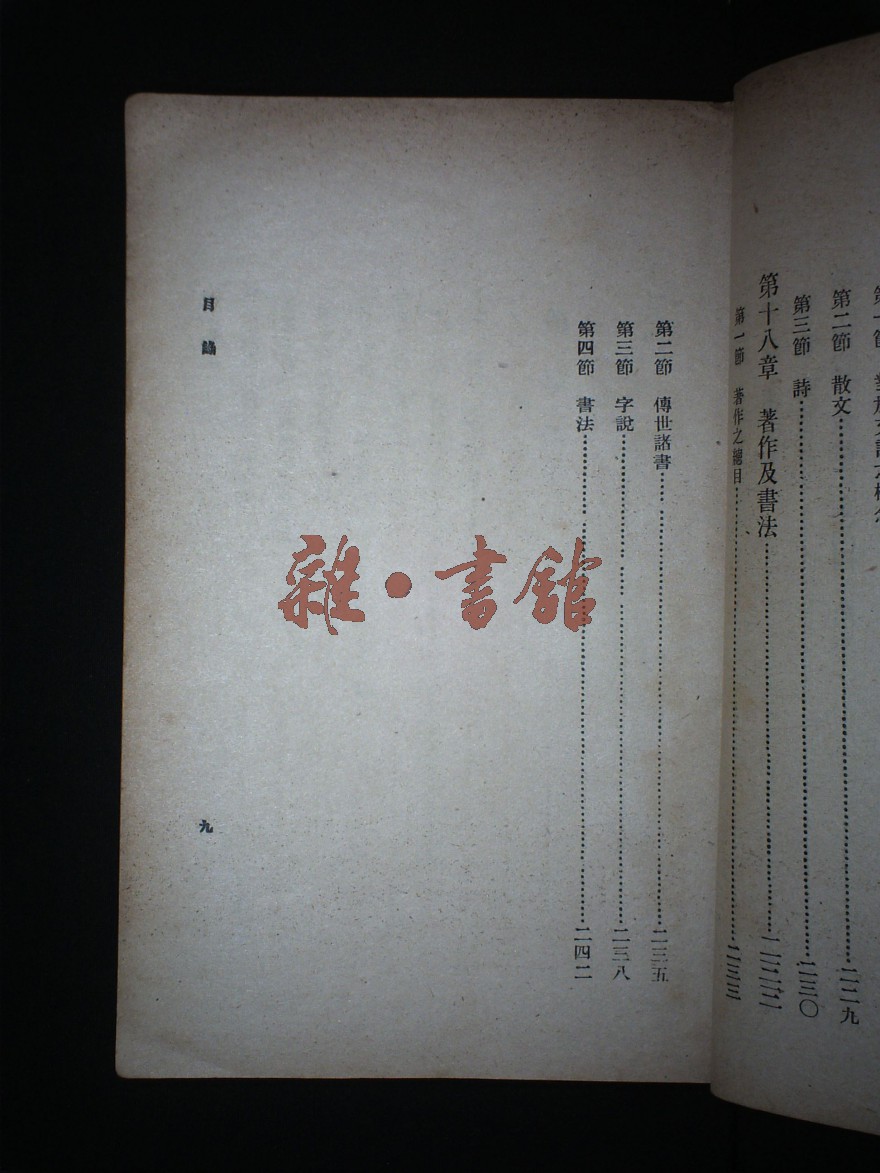 第二節 散文……二二九
第三節 詩……二三〇
第十八章 著作及書法……
第一節 著作之總目……二三三
第二節 傳世諸書……二三五
第三節 字說……二三八
第四節 書法……二四二
目錄
九
雜·書館